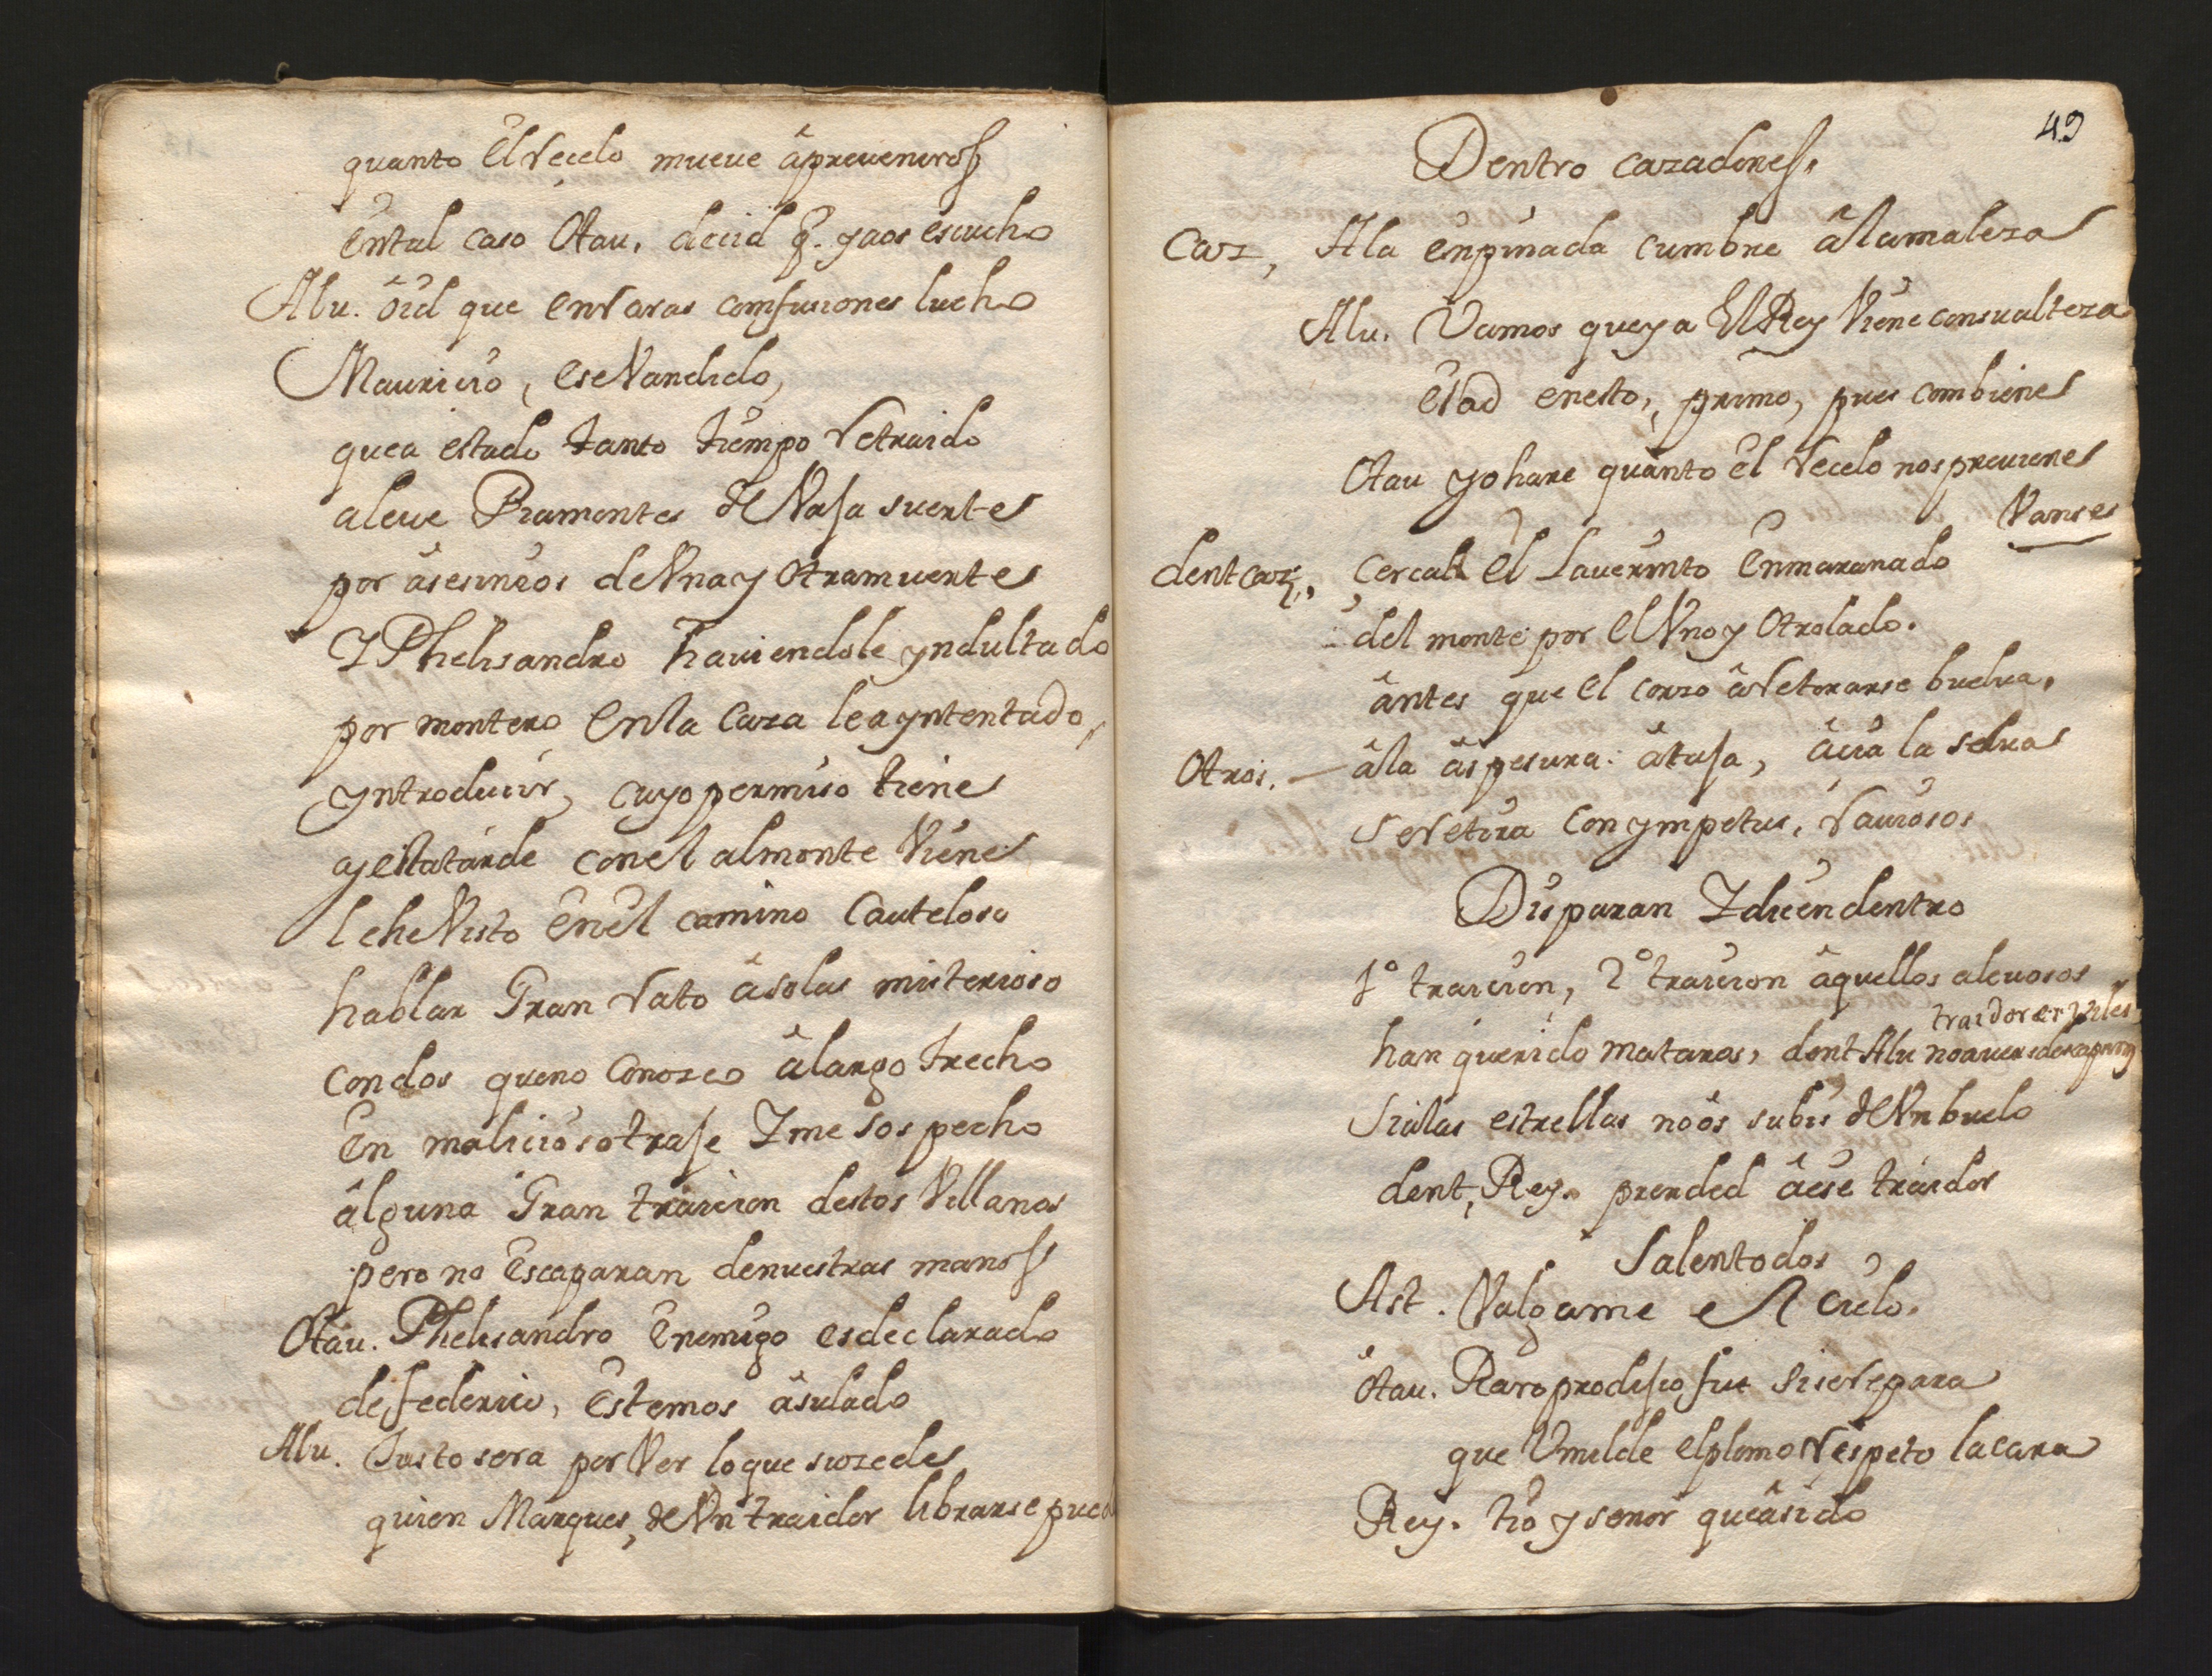 quanto El recelo mueue âpreueniros
Ental caso Otau. decid q̃. yaos escucho
Alu. ôid que enraras comfusiones lucho
Mauricio, eseVandido,
quea estado tanto tiempo retraido
aleue Piamontes deVaja suerte
por âsesinios deVna y Otramuerte
I Phelisandro haviendole yndultado
por montero Enla caza lea yntentado
yntroducir, cuyo permiso tiene
y estatarde conel almonte Viene
leheVisto Enel camino Cauteloso
hablar Gran rato âsolas misterioso
condos queno Conozco âlargo trecho
En malicioso traje I me sospecho
âlguna Gran traicion destos Villanos
pero no Escaparan denuestras manos
Otau. Phelisandro Enemigo esdeclarado
defederico, Estemos âsulado
Alu. Justo sera porVer loque sucede
quien Marques, deVn traidor librarse pued
49
Dentro cazadores.
Caz, Ala enpinada cumbre âlamaleza
Alu. Vamos queya El Rey Viene consualteza
Estad enesto, primo, pues combiene
Otau yohare quanto El recelo nospreuiene
Vanse
dent caz,, Cercad El Lauerinto Enmaranado
del monte por elVno y Otrolado.
ântes que el corzo âretirarse buelua.
Otros. âla âspesura: âtaja, âcia la selua
Seretira con ympetus, rauiosos
Disparan I dicen dentro
1º traicion, 2º traicion âquellos aleuosos
traidores viles
han querido mataros, dent Alu
Sialas estrellas noôs subis deVn buelo
dent, Rey. prended âese traidor
Salentodos
Ast. Valgame el Cielo.
Otau. Raro prodijio fue siserepara
que Vmilde elplomo respeto lacara
Rey. tio y senor queâsido